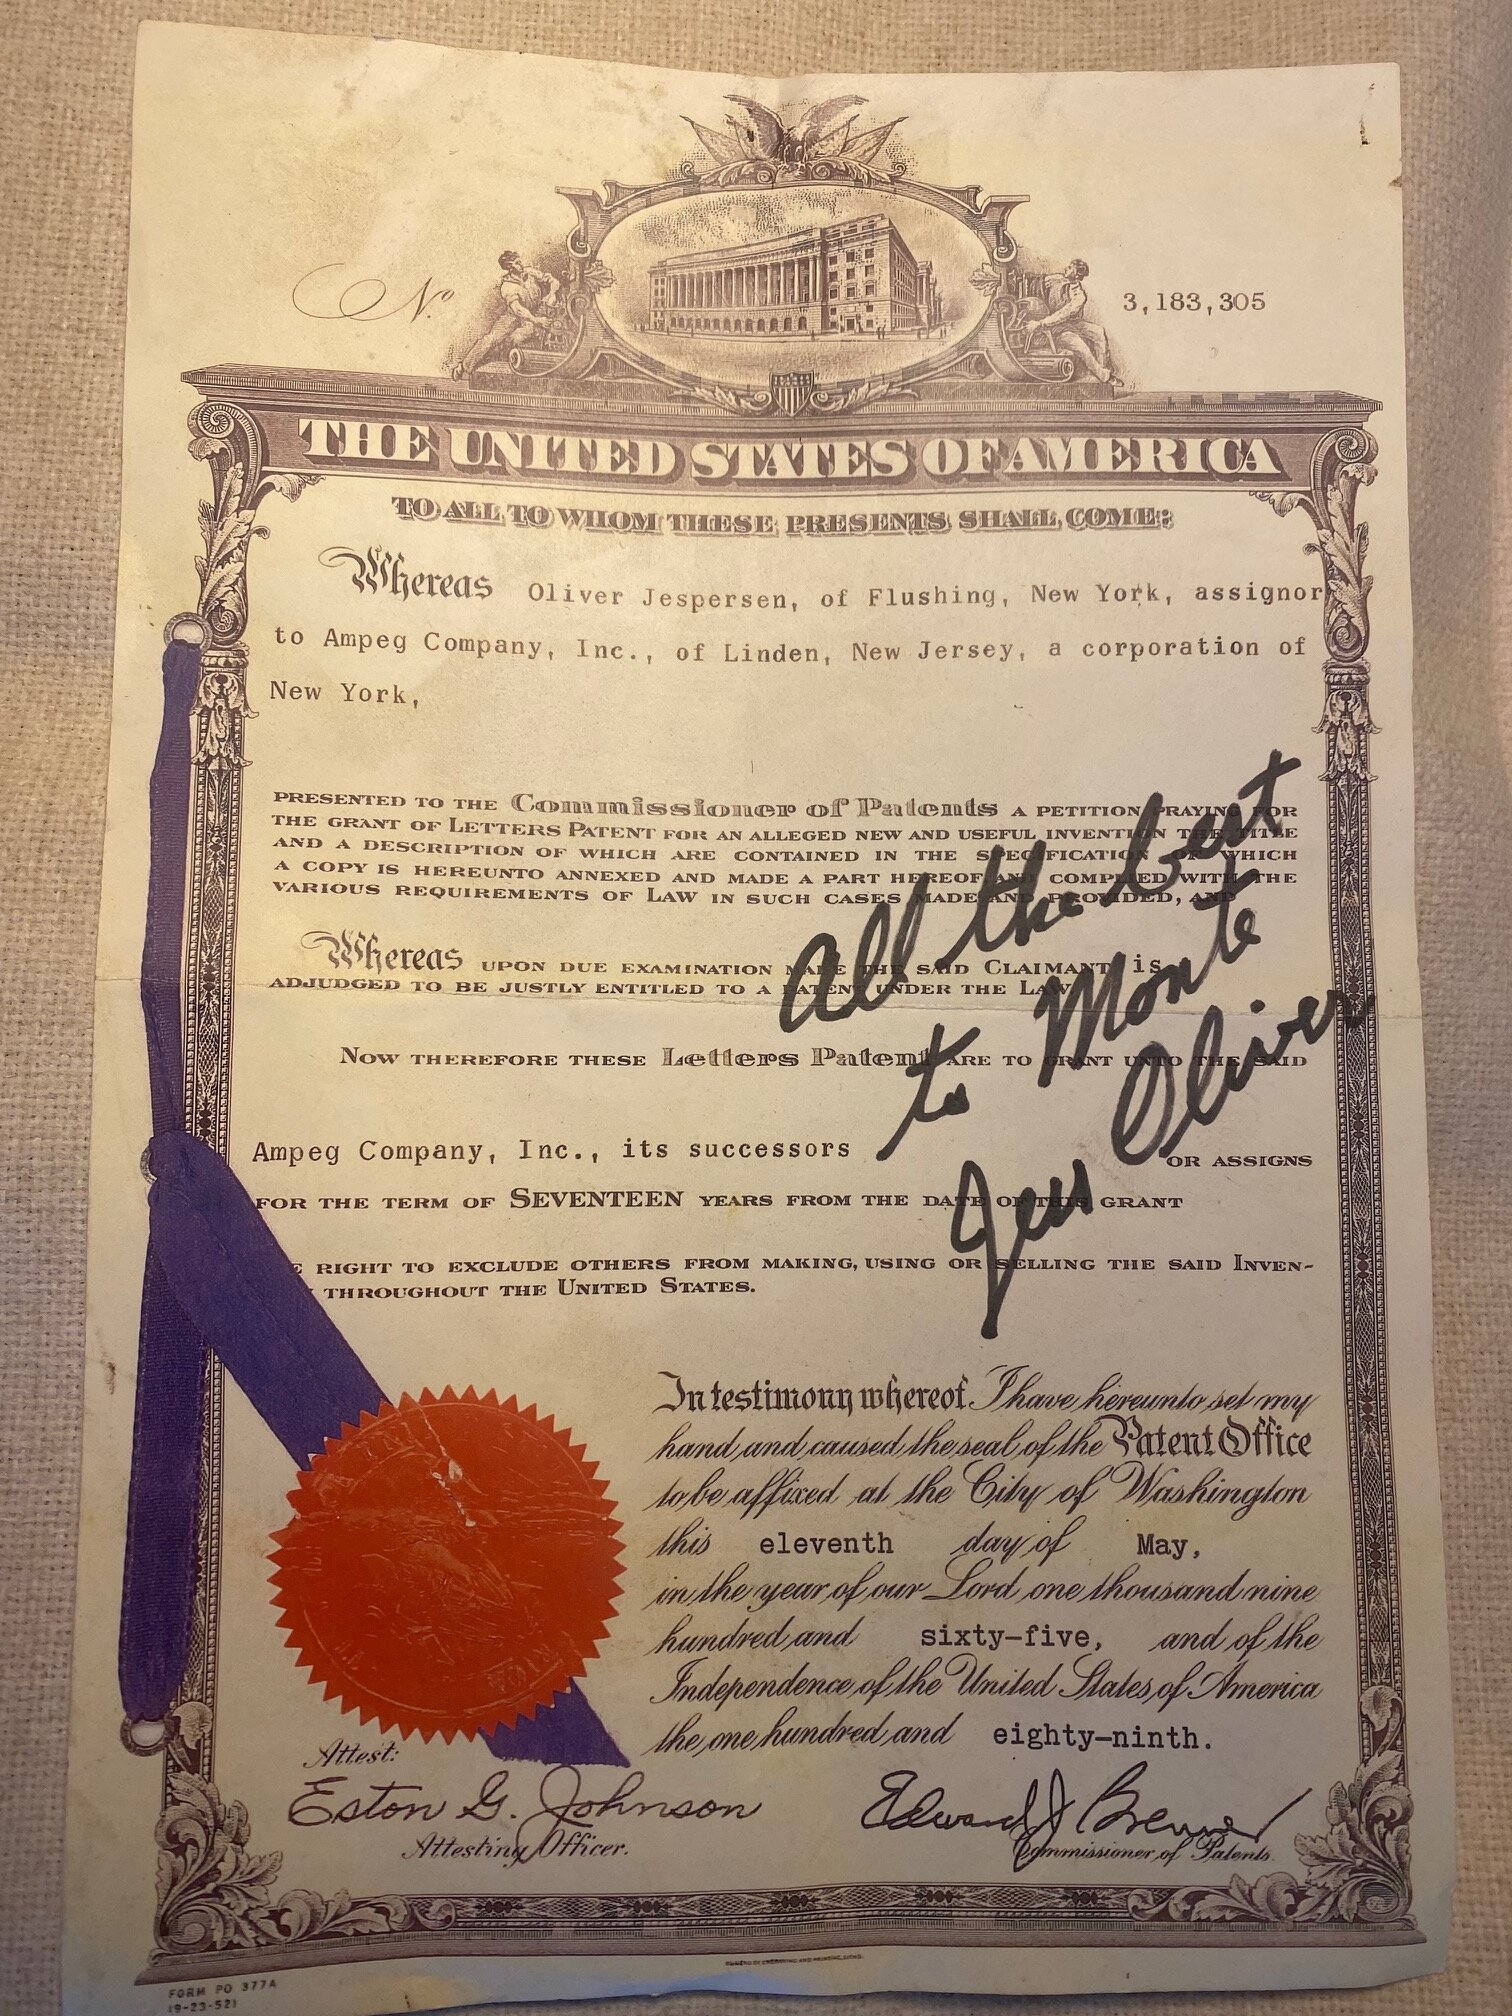 No.
3,183,305
THE UNITED STATES OF AMERICA
TO ALL TO WHOM THESE PRESENTS SHALL COME:
Whereas Oliver Jespersen, of Flushing, New York, assignor
to Ampeg Company, Inc., of Linden, New Jersey, a corporation of
New York,
PRESENTED TO THE Commissioner of Patents A PETITION PRAYING FOR
THE GRANT OF LETTERS PATENT FOR AN ALLEGED NEW AND USEFUL INVENTION THE TITLE
AND A DESCRIPTION OF WHICH ARE CONTAINED IN THE SPECIFICATION OF WHICH
A COPY IS HEREUNTO ANNEXED AND MADE A PART HEREOF AND COMPLIED WITH THE
VARIOUS REQUIREMENTS OF LAW IN SUCH CASES MADE AND PROVIDED, AND
Whereas UPON DUE EXAMINATION MADE THE SAID CLAIMANT is
ADJUDGED TO BE JUSTLY ENTITLED TO A PATENT UNDER THE LAW
NOW THEREFORE THESE Letters Patent ARE TO GRANT UNTO THE SAID
Ampeg Company, Inc., its successors
OR ASSIGNS
FOR THE TERM OF SEVENTEEN YEARS FROM THE DATE OF THIS GRANT
RIGHT TO EXCLUDE OTHERS FROM MAKING, USING OR SELLING THE SAID INVEN-
THROUGHOUT THE UNITED STATES.
All the best
to Monte
Jess Oliver
In testimony whereof I have hereunto set my
hand and caused the seal of the Patent Office
to be affixed at the City of Washington
this eleventh day of May,
in the year of our Lord one thousand nine
hundred and sixty-five, and of the
Independence of the United States of America
the one hundred and eighty-ninth.
Attest:
Eston G. Johnson
Attesting Officer.
Edward J Brenner
Commissioner of Patents.
FORM PO 377A
(9-23-52)